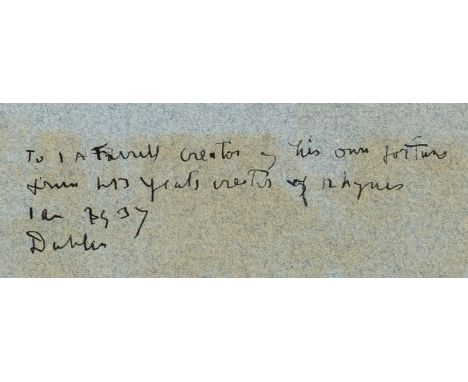 To J A Farrell creator of his own fortune
from WB Yeats creator of rhymes
Jan 29 37
Dublin